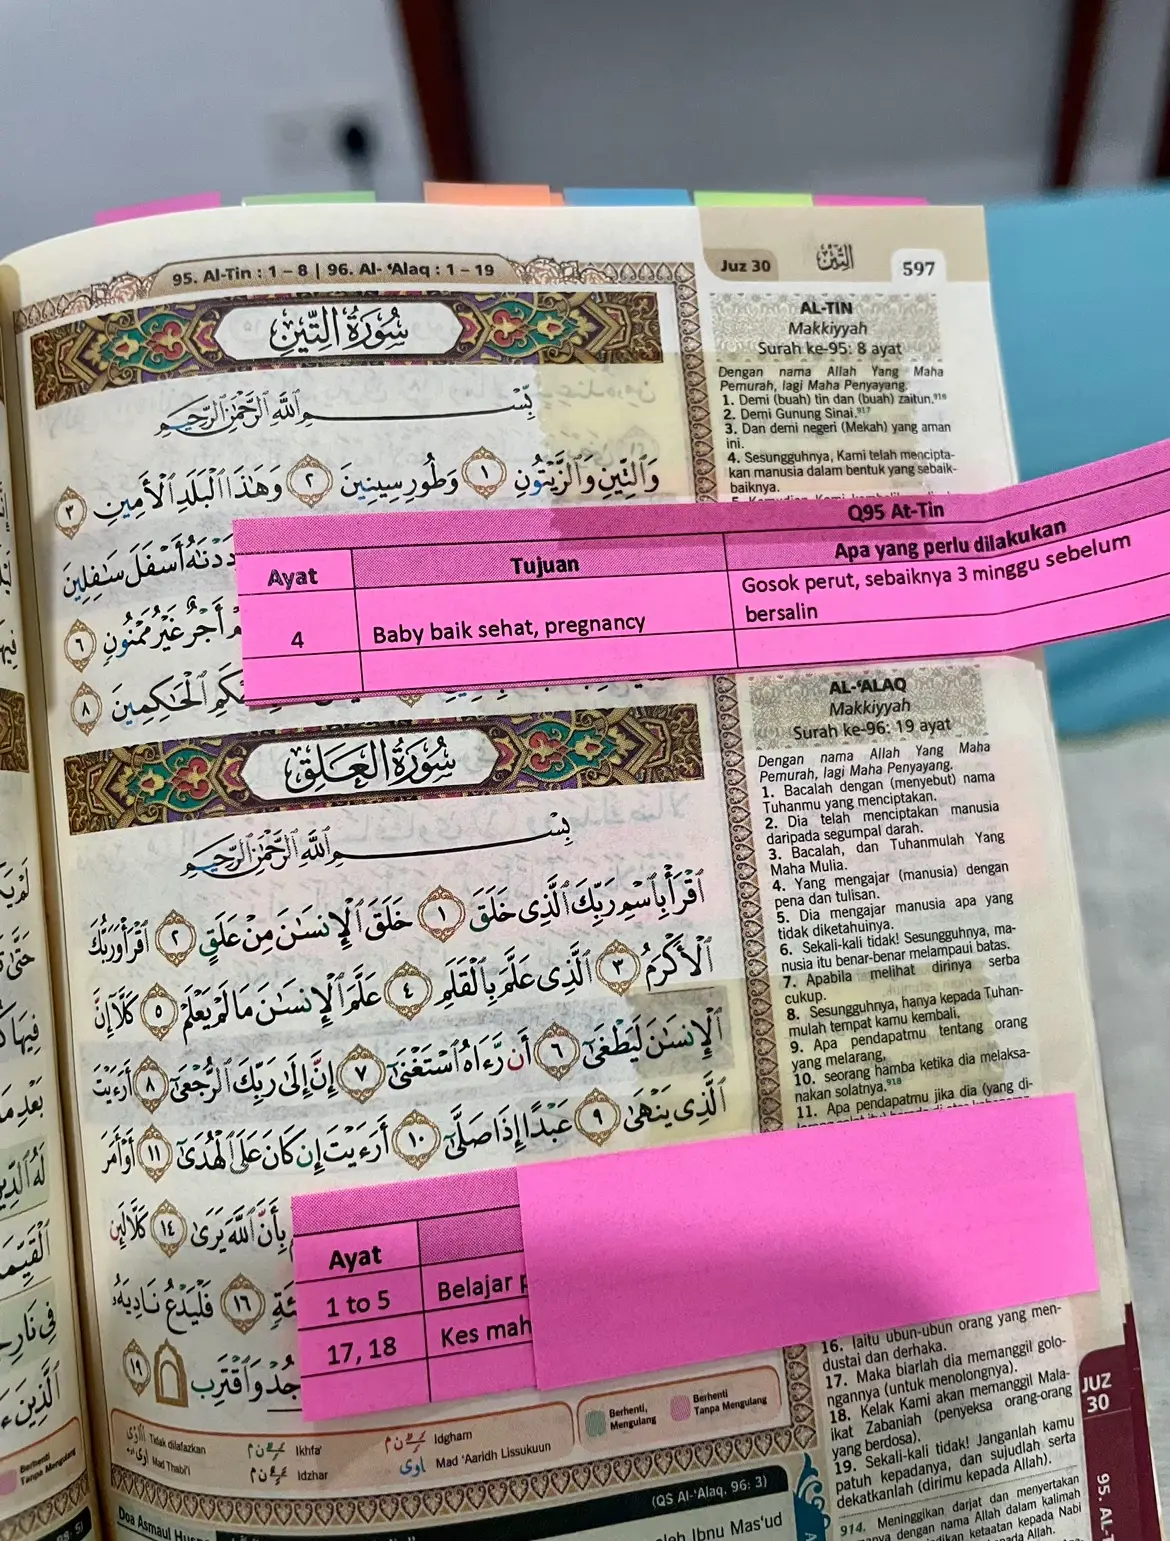 95. Al-Tin : 1 – 8 | 96. Al- ‘Alaq : 1 – 19
Juz 30
التين
597
سُورَةُ التِّينِ
بِسْمِ اللَّهِ الرَّحْمَٰنِ الرَّحِيمِ
وَالتِّينِ وَالزَّيْتُونِ ١ وَطُورِ سِينِينَ ٢ وَهَٰذَا الْبَلَدِ الْأَمِينِ ٣
أَسْفَلَ سَافِلِينَ
أَجْرٌ غَيْرُ مَمْنُونٍ ٦
الْحَاكِمِينَ ٨
AL-TIN
Makkiyyah
Surah ke-95: 8 ayat
Dengan nama Allah Yang Maha
Pemurah, lagi Maha Penyayang.
1. Demi (buah) tin dan (buah) zaitun.⁹¹⁶
2. Demi Gunung Sinai.⁹¹⁷
3. Dan demi negeri (Mekah) yang aman
ini.
4. Sesungguhnya, Kami telah mencipta-
kan manusia dalam bentuk yang sebaik-
baiknya.
Q95 At-Tin
Ayat Tujuan Apa yang perlu dilakukan
4 Baby baik sehat, pregnancy Gosok perut, sebaiknya 3 minggu sebelum
bersalin
سُورَةُ الْعَلَقِ
بِسْمِ اللَّهِ الرَّحْمَٰنِ الرَّحِيمِ
اقْرَأْ بِاسْمِ رَبِّكَ الَّذِي خَلَقَ ١ خَلَقَ الْإِنسَانَ مِنْ عَلَقٍ ٢ اقْرَأْ وَرَبُّكَ
الْأَكْرَمُ ٣ الَّذِي عَلَّمَ بِالْقَلَمِ ٤ عَلَّمَ الْإِنسَانَ مَا لَمْ يَعْلَمْ ٥ كَلَّا إِنَّ
الْإِنسَانَ لَيَطْغَىٰ ٦ أَن رَّءَاهُ اسْتَغْنَىٰ ٧ إِنَّ إِلَىٰ رَبِّكَ الرُّجْعَىٰ ٨ أَرَءَيْتَ
الَّذِي يَنْهَىٰ ٩ عَبْدًا إِذَا صَلَّىٰ ١٠ أَرَءَيْتَ إِن كَانَ عَلَى الْهُدَىٰ ١١ أَوْ أَمَرَ
بِأَنَّ اللَّهَ يَرَىٰ ١٤ كَلَّا لَئِن
١٦ فَلْيَدْعُ نَادِيَهُ
وَاقْتَرِب ١٩
AL-‘ALAQ
Makkiyyah
Surah ke-96: 19 ayat
Dengan nama Allah Yang Maha
Pemurah, lagi Maha Penyayang.
1. Bacalah dengan (menyebut) nama
Tuhanmu yang menciptakan.
2. Dia telah menciptakan manusia
daripada segumpal darah.
3. Bacalah, dan Tuhanmulah Yang
Maha Mulia.
4. Yang mengajar (manusia) dengan
pena dan tulisan.
5. Dia mengajar manusia apa yang
tidak diketahuinya.
6. Sekali-kali tidak! Sesungguhnya, ma-
nusia itu benar-benar melampaui batas.
7. Apabila melihat dirinya serba
cukup.
8. Sesungguhnya, hanya kepada Tuhan-
mulah tempat kamu kembali.
9. Apa pendapatmu tentang orang
yang melarang,
10. seorang hamba ketika dia melaksa-
nakan solatnya.⁹¹⁸
11. Apa pendapatmu jika dia (yang di-
Ayat
1 to 5 Belajar
17, 18 Kes
16. Iaitu ubun-ubun orang yang men-
dustai dan derhaka.
17. Maka biarlah dia memanggil golo-
ngannya (untuk menolongnya).
18. Kelak Kami akan memanggil Mala-
ikat Zabaniah (penyeksa orang-orang
yang berdosa).
19. Sekali-kali tidak! Janganlah kamu
patuh kepadanya, dan sujudlah serta
dekatkanlah (dirimu kepada Allah).
JUZ
30
Tidak dilafazkan
Mad Thabi'i
Ikhfa'
Idzhar
Idgham
Mad 'Aaridh Lissukuun
Berhenti,
Mengulang
Berhenti
Tanpa Mengulang
Berhenti
Tanpa Mengulang
(QS Al-‘Alaq, 96: 3)
Doa Asmaul
Ibnu Mas'ud
914. Meninggikan darjat dan menyertakan
dengan nama Allah dalam kalimah
ketaatan kepada Nabi
Allah.